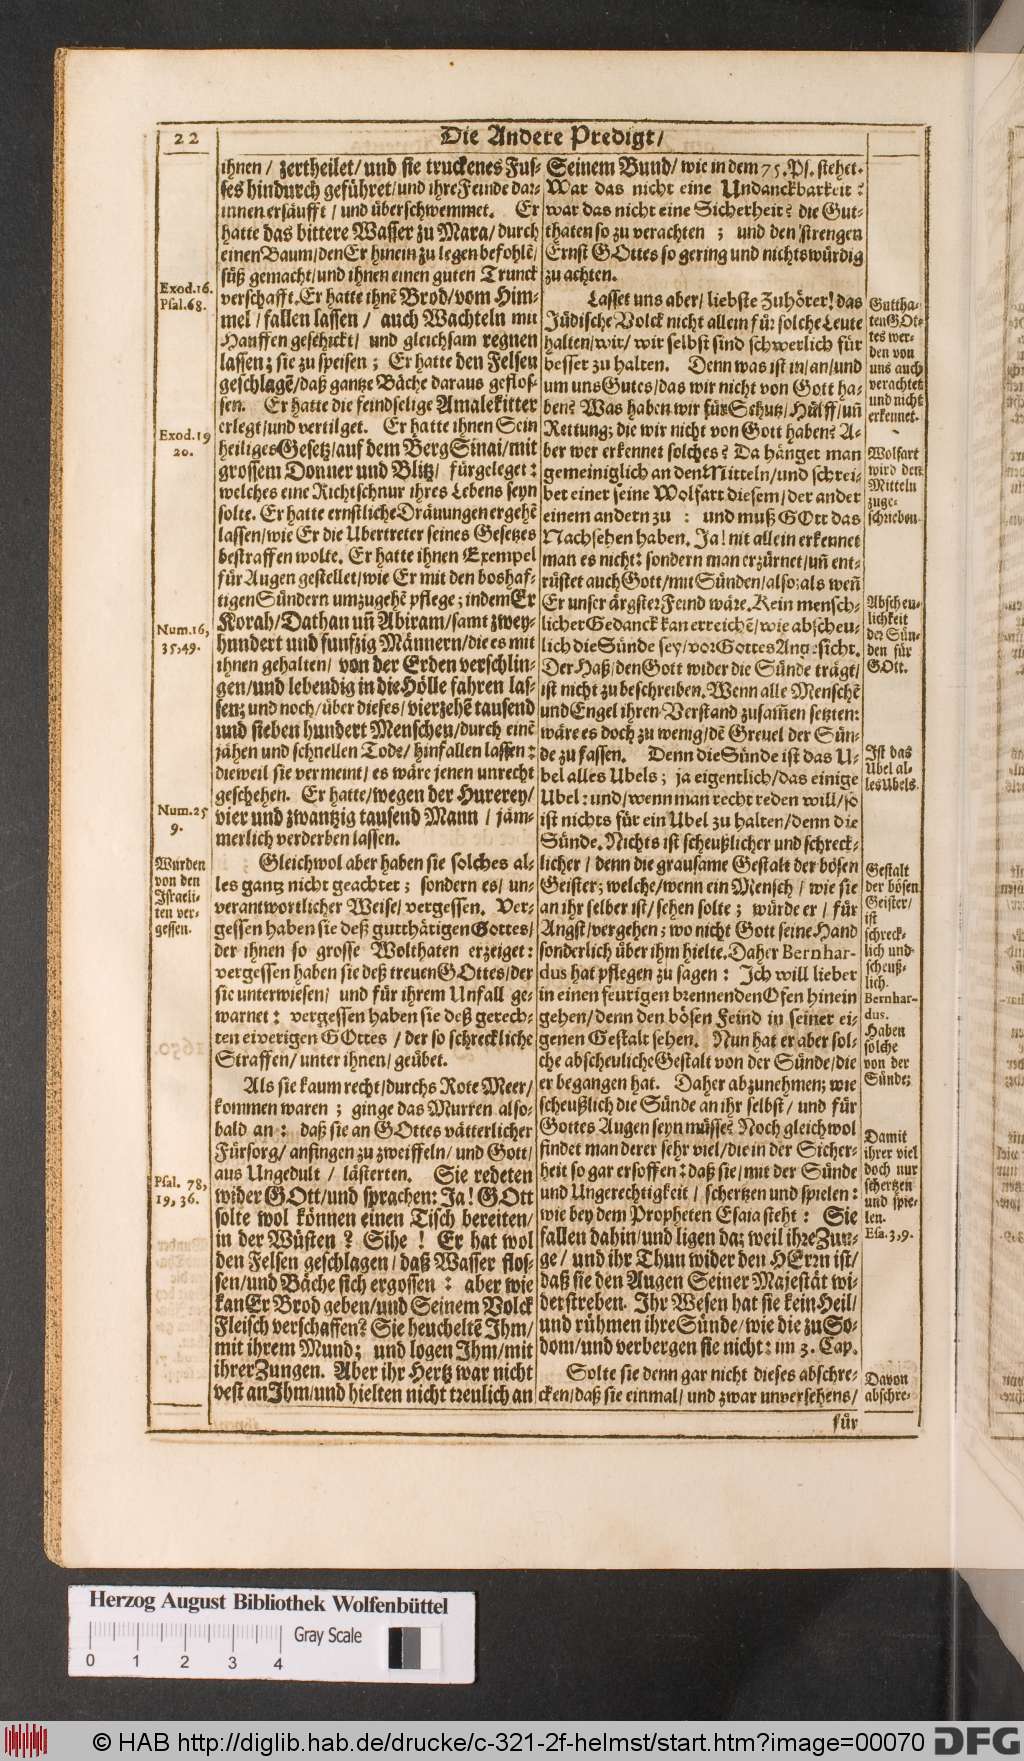 22
Die Andere Predigt/
ihnen / zertheilet/ und sie truckenes Fus-
ses hindurch geführet/ und ihre Feinde dar-
innen ersäufft / und überschwemmet. Er
hatte das bittere Wasser zu Mara/ durch
einen Baum/ den Er hinein zu legen befohlẽ/
süß gemacht/ und ihnen einen guten Trunck
verschafft. Er hatte ihnẽ Brod/ vom Him-
mel / fallen lassen / auch Wachteln mit
Hauffen geschickt/ und gleichsam regnen
lassen; sie zu speisen; Er hatte den Felsen
geschlagẽ/ daß gantze Bäche daraus geflos-
sen. Er hatte die feindselige Amalekitter
erlegt/ und vertilget. Er hatte ihnen Sein
heiliges Gesetz/ auf dem Berg Sinai/ mit
grossem Donner und Blitz/ fürgeleget:
welches eine Richtschnur ihres Lebens seyn
solte. Er hatte ernstliche Dräuungen ergehẽ
lassen/ wie Er die Ubertreter seines Gesetzes
bestraffen wolte. Er hatte ihnen Exempel
für Augen gestellet/ wie Er mit den boshaf-
tigen Sündern umzugehẽ pflege; indem Er
Korah/ Dathan uñ Abiram/ samt zwey-
hundert und funfzig Männern/ die es mit
ihnen gehalten/ von der Erden verschlin-
gen/ und lebendig in die Hölle fahren las-
sen; und noch/ über dieses/ vierzehẽ tausend
und sieben hundert Menschen/ durch einẽ
jähen und schnellen Tode/ hinfallen lassen:
dieweil sie vermeint/ es wäre jenen unrecht
geschehen. Er hatte/ wegen der Hurerey/
vier und zwantzig tausend Mann / jäm-
merlich verderben lassen.
Gleichwol aber haben sie solches al-
les gantz nicht geachtet; sondern es/ un-
verantwortlicher Weise/ vergessen. Ver-
gessen haben sie deß gutthätigen Gottes/
der ihnen so grosse Wolthaten erzeiget:
vergessen haben sie deß treuen GOttes/ der
sie unterwiesen/ und für ihrem Unfall ge-
warnet: vergessen haben sie deß gerech-
ten eiverigen GOttes / der so schreckliche
Straffen/ unter ihnen/ geübet.
Als sie kaum recht/ durchs Rote Meer/
kommen waren; ginge das Murren also-
bald an: daß sie an GOttes vätterlicher
Fürsorg/ anfingen zu zweiffeln/ und Gott/
aus Ungedult / lästerten. Sie redeten
wider GOtt/ und sprachen: Ja! GOtt
solte wol können einen Tisch bereiten/
in der Wüsten? Sihe! Er hat wol
den Felsen geschlagen/ daß Wasser flos-
sen/ und Bäche sich ergossen: aber wie
kan Er Brod geben/ und Seinem Volck
Fleisch verschaffen? Sie heucheltẽ Ihm/
mit ihrem Mund; und logen Ihm/ mit
ihrer Zungen. Aber ihr Hertz war nicht
vest an Ihm/ und hielten nicht treulich an
Exod. 16.
Psal. 68.
Exod. 19
20.
Num. 16,
35, 49.
Num. 25
9.
Wurden
von den
Israeli-
ten ver-
gessen.
Psal. 78,
19, 36.
Seinem Bund/ wie in dem 75. Ps. stehet.
War das nicht eine Undanckbarkeit?
war das nicht eine Sicherheit? die Gut-
thaten so zu verachten; und den strengen
Ernst GOttes so gering und nichtswürdig
zu achten.
Lasset uns aber/ liebste Zuhörer! das
Jüdische Volck nicht allein für solche Leute
halten/ wir/ wir selbst sind schwerlich für
besser zu halten. Denn was ist in/ an/ und
um uns Gutes/ das wir nicht von Gott ha-
ben? Was haben wir für Schutz/ Hülff/ uñ
Rettung; die wir nicht von Gott haben? A-
ber wer erkennet solches? Da hänget man
gemeiniglich an den Mitteln/ und schrei-
bet einer seine Wolfart diesem/ der ander
einem andern zu: und muß GOtt das
Nachsehen haben. Ja! nit allein erkennet
man es nicht: sondern man erzürnet/ uñ ent-
rüstet auch Gott/ mit Sünden/ also: als weñ
Er unser ärgster Feind wäre. Kein mensch-
licher Gedanck kan erreichẽ/ wie abscheu-
lich die Sünde sey/ vor Gottes Angesicht.
Der Haß/ den Gott wider die Sünde trägt/
ist nicht zu beschreiben. Wenn alle Menschẽ
und Engel ihren Verstand zusam̃en setzten:
wäre es doch zu wenig/ dẽ Greuel der Sün-
de zu fassen. Denn die Sünde ist das U-
bel alles Ubels; ja eigentlich/ das einige
Ubel: und/ wenn man recht reden will/ so
ist nichts für ein Ubel zu halten/ denn die
Sünde. Nichts ist scheußlicher und schreck-
licher / denn die grausame Gestalt der bösen
Geister; welche/ wenn ein Mensch / wie sie
an ihr selber ist/ sehen solte; würde er / für
Angst/ vergehen; wo nicht Gott seine Hand
sonderlich über ihm hielte. Daher Bernhar-
dus hat pflegen zu sagen: Ich will lieber
in einen feurigen brennenden Ofen hinein
gehen/ denn den bösen Feind in seiner ei-
genen Gestalt sehen. Nun hat er aber sol-
che abscheuliche Gestalt von der Sünde/ die
er begangen hat. Daher abzunehmen; wie
scheußlich die Sünde an ihr selbst/ und für
Gottes Augen seyn müsse? Noch gleichwol
findet man derer sehr viel/ die in der Sicher-
heit so gar ersoffen: daß sie/ mit der Sünde
und Ungerechtigkeit / schertzen und spielen:
wie bey dem Propheten Esaia steht: Sie
fallen dahin/ und ligen da; weil ihre Zun-
ge/ und ihr Thun wider den HErrn ist/
daß sie den Augen Seiner Majestät wi-
derstreben. Ihr Wesen hat sie kein Heil/
und rühmen ihre Sünde/ wie die zu So-
dom/ und verbergen sie nicht: im 3. Cap.
Solte sie denn gar nicht dieses abschre-
cken/ daß sie einmal/ und zwar unversehens/
für
Guttha-
ten GOt-
tes wer-
den von
uns auch
verachtet
und nicht
erkennet.
Wolfart
wird den
Mitteln
zuge-
schrieben.
Abscheu-
lichkeit
der Sün-
den für
GOtt.
Ist das
Ubel al-
les Ubels.
Gestalt
der bösen
Geister/
ist
schreck-
lich und
scheuß-
lich.
Bernhar-
dus.
Haben
solche
von der
Sünde;
Damit
ihrer viel
doch nur
schertzen
und spie-
len.
Esa. 3, 9.
Davon
abschre-
Herzog August Bibliothek Wolfenbüttel
Gray Scale
0 1 2 3 4
© HAB http://diglib.hab.de/drucke/c-321-2f-helmst/start.htm?image=00070
DFG